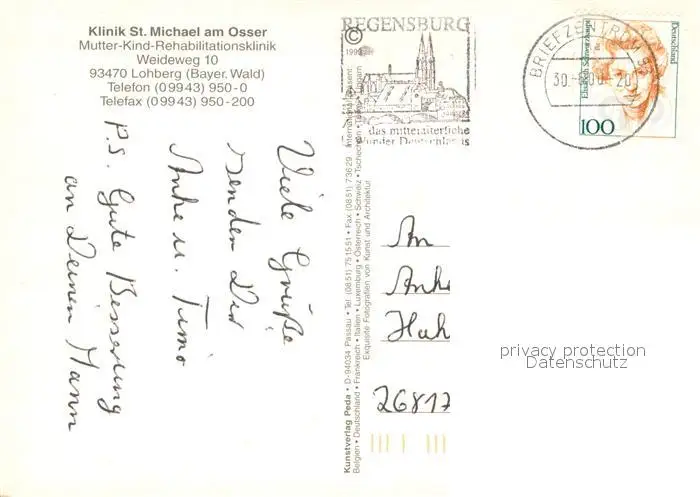 Klinik St. Michael am Osser
Mutter-Kind-Rehabilitationsklinik
Weideweg 10
93470 Lohberg (Bayer. Wald)
Telefon (0 99 43) 950-0
Telefax (0 99 43) 950-200
Viele Grüße
senden Dir
Anke u. Timo
P.S. Gute Besserung
an Deinen Mann
Kunstverlag Peda • D-94034 Passau • Tel. (08 51) 75 15 91 • Fax (08 51) 7 36 29
Belgien • Deutschland • Frankreich • Italien • Luxemburg • Österreich • Schweiz • Tschechien
Exquisite Fotografien von Kunst und Architektur
©
REGENSBURG
das mittelalterliche
Wunder Deutschlands
BRIEFZENTRUM 93
Deutschland
100
An
Anke
Hah
26817
privacy protection
Datenschutz